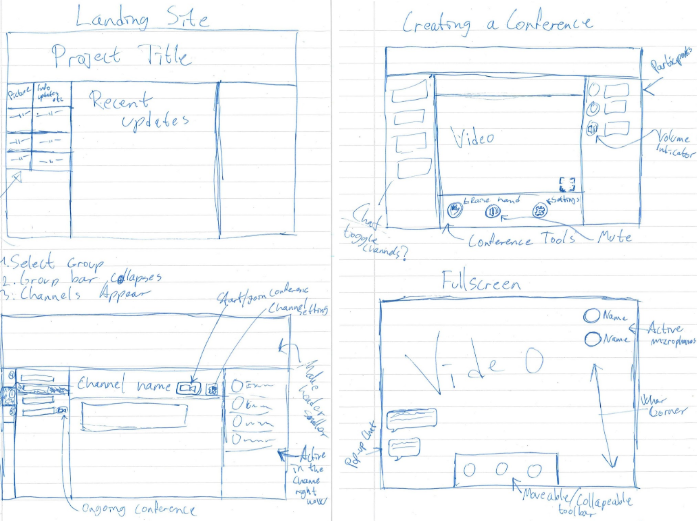 Landing Site
Project Title
Picture
Info
updates
etc
Recent
updates
1. Select Group
2. Group bar collapses
3. Channels Appear
Start/join conference
Channel setting
Channel name
Make
header
smaller
Active
in the
channel
right
now
Ongoing conference
Creating a Conference
Participants
Video
Volume
indicator
hand
Settings
Chat
toggle
channels?
Conference Tools
Mute
Fullscreen
Name
Name
Active
microphones
Video
User
Corner
Pop-up Chat
Moveable/Collapeable
toolbar